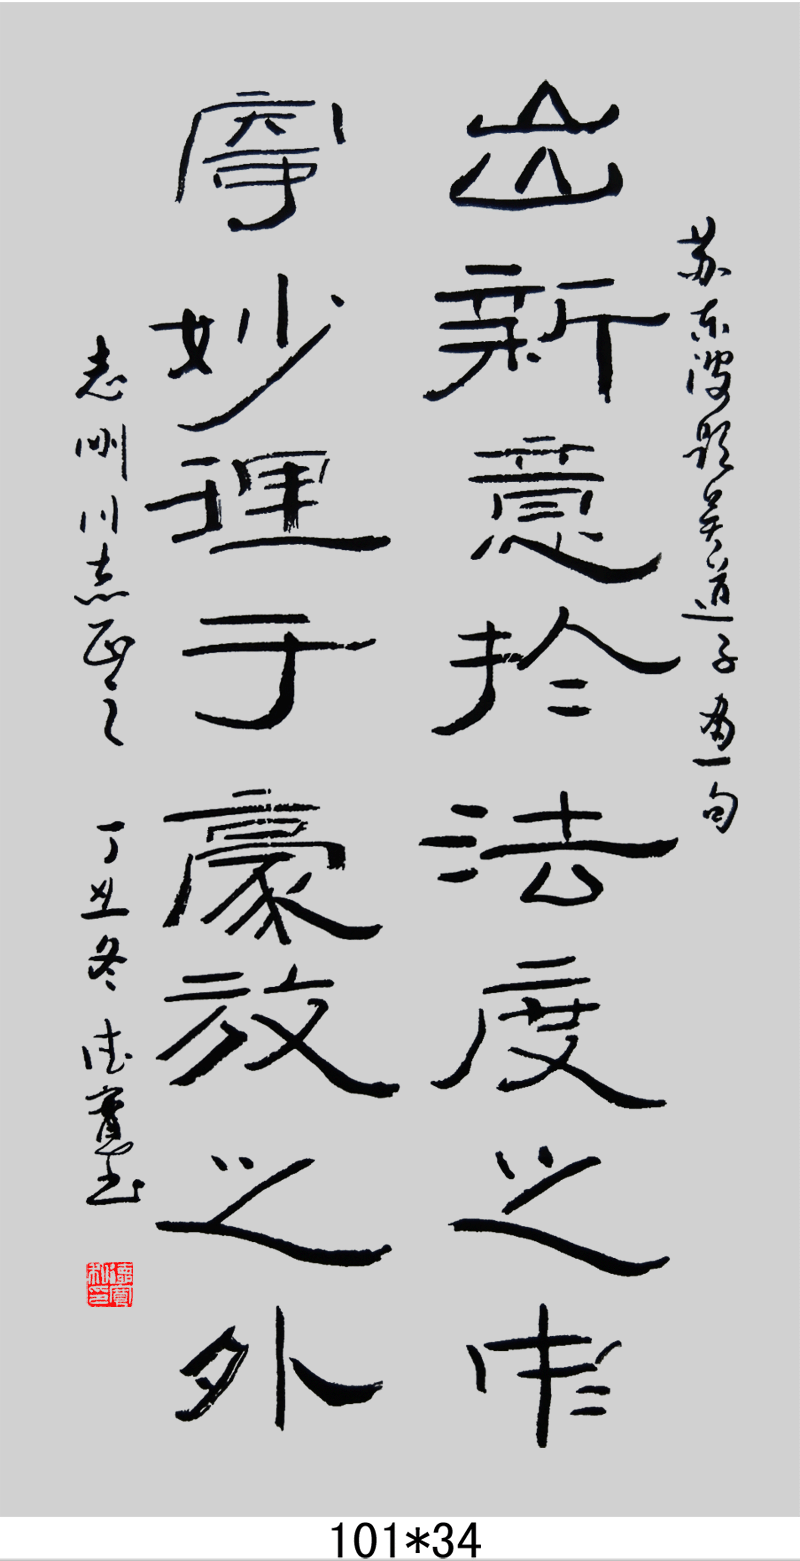 苏东坡题吴道子画一句
出新意於法度之中
寄妙理于豪放之外
志刚同志正之 丁丑冬 德宝书
101*34